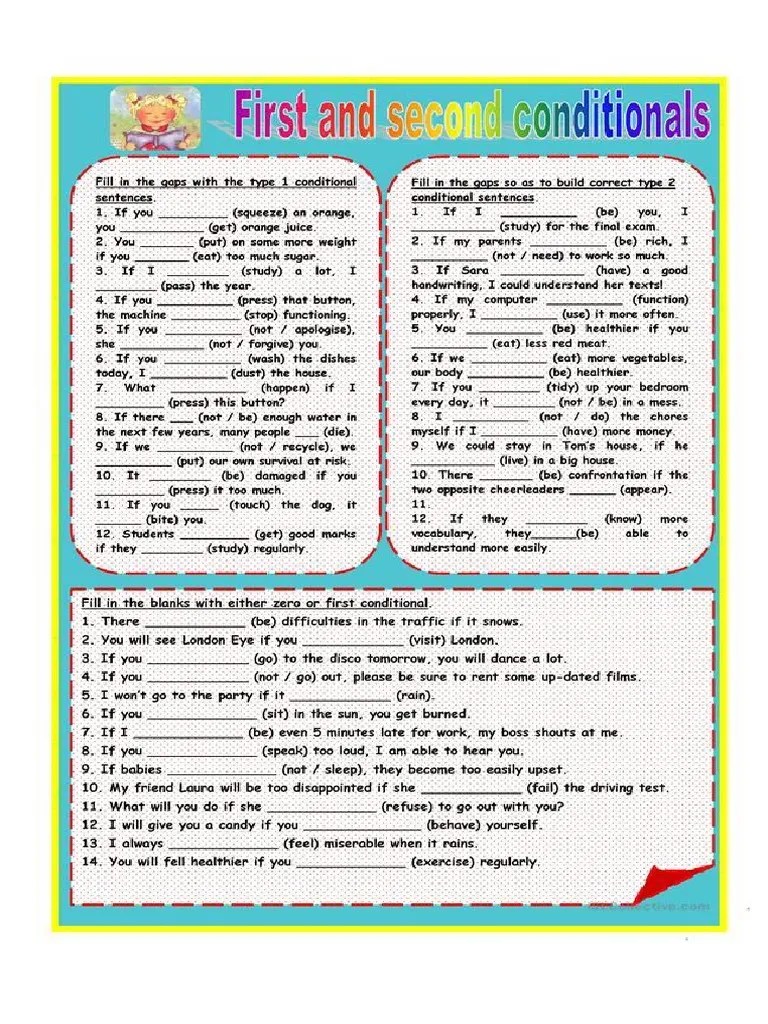 First and second conditionals
Fill in the gaps with the type 1 conditional
sentences.
1. If you __________ (squeeze) an orange,
you ____________ (get) orange juice.
2. You _______ (put) on some more weight
if you ________ (eat) too much sugar.
3. If I __________ (study) a lot, I
_________ (pass) the year.
4. If you ___________ (press) that button,
the machine __________ (stop) functioning.
5. If you ____________ (not / apologise),
she ____________ (not / forgive) you.
6. If you ____________ (wash) the dishes
today, I ____________ (dust) the house.
7. What ____________ (happen) if I
__________ (press) this button?
8. If there ___ (not / be) enough water in
the next few years, many people ___ (die).
9. If we ___________ (not / recycle), we
___________ (put) our own survival at risk.
10. It __________ (be) damaged if you
__________ (press) it too much.
11. If you _____ (touch) the dog, it
_______ (bite) you.
12. Students __________ (get) good marks
if they _________ (study) regularly.
Fill in the gaps so as to build correct type 2
conditional sentences.
1 If I ___________ (be) you, I
____________ (study) for the final exam.
2. If my parents ___________ (be) rich, I
___________ (not / need) to work so much.
3. If Sara ____________ (have) a good
handwriting, I could understand her texts!
4. If my computer ___________ (function)
properly, I ___________ (use) it more often.
5. You ___________ (be) healthier if you
___________ (eat) less red meat.
6. If we ___________ (eat) more vegetables,
our body ___________ (be) healthier.
7. If you ________ (tidy) up your bedroom
every day, it ________ (not / be) in a mess.
8. I ____________ (not / do) the chores
myself if I _______ (have) more money.
9. We could stay in Tom's house, if he
____________ (live) in a big house.
10. There ________ (be) confrontation if the
two opposite cheerleaders _______ (appear).
11.
12. If they ___________ (know) more
vocabulary, they______(be) able to
understand more easily.
Fill in the blanks with either zero or first conditional.
1. There _____________ (be) difficulties in the traffic if it snows.
2. You will see London Eye if you _____________ (visit) London.
3. If you _____________ (go) to the disco tomorrow, you will dance a lot.
4. If you _____________ (not / go) out, please be sure to rent some up-dated films.
5. I won't go to the party if it _____________ (rain).
6. If you ______________ (sit) in the sun, you get burned.
7. If I ______________ (be) even 5 minutes late for work, my boss shouts at me.
8. If you ______________ (speak) too loud, I am able to hear you.
9. If babies ______________ (not / sleep), they become too easily upset.
10. My friend Laura will be too disappointed if she _____________ (fail) the driving test.
11. What will you do if she ______________ (refuse) to go out with you?
12. I will give you a candy if you _______________ (behave) yourself.
13. I always ______________ (feel) miserable when it rains.
14. You will fell healthier if you ______________ (exercise) regularly.